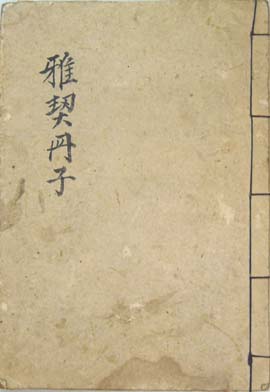 雅契丹子